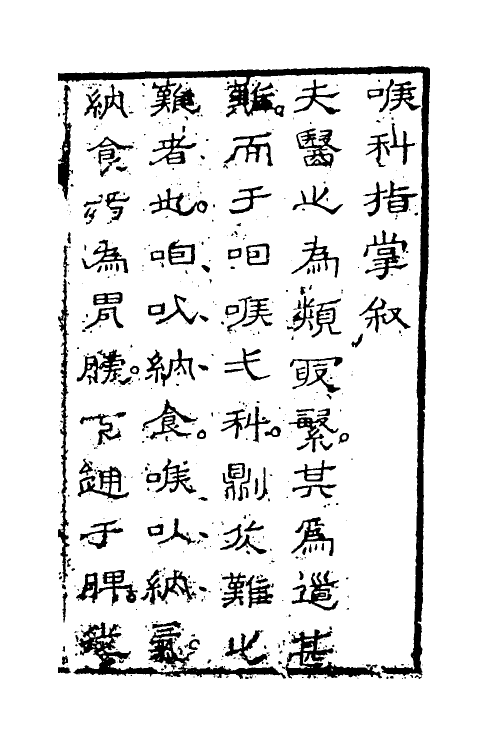 喉科指掌叙
夫醫之為類寂繁。其為道甚
難。而于咽喉弌科。則尤難之
難者也。咽、以、納、食。喉、以、納、氣。
納食者為胃脘。下通于脾